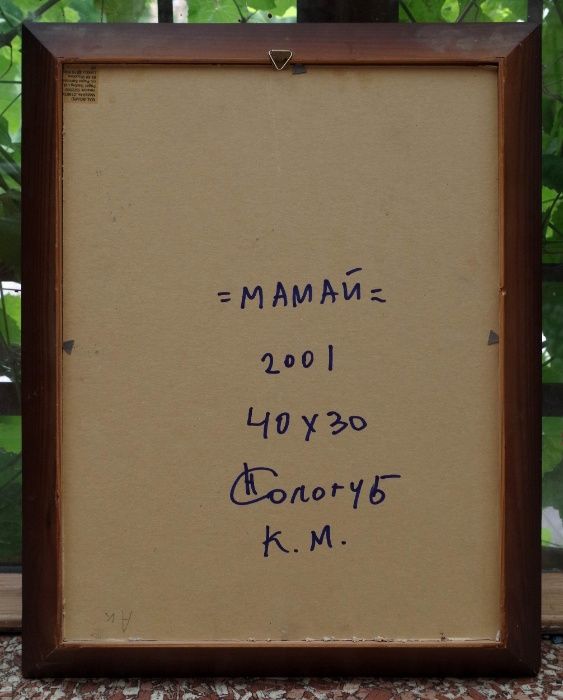 = МАМАЙ =
2001
40 х 30
Сологуб
К. М.